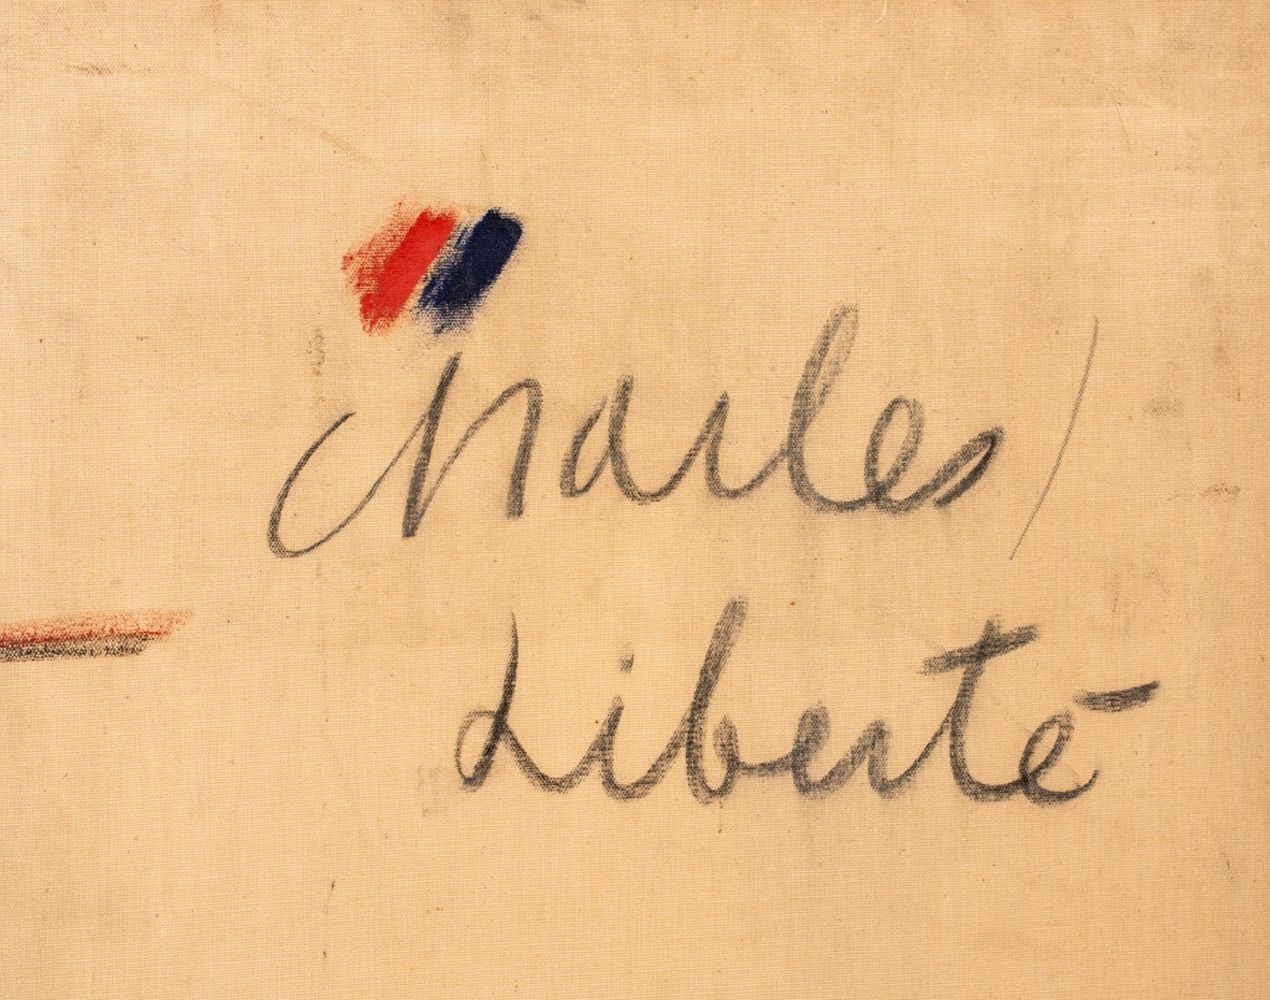 Charles /
Liberté